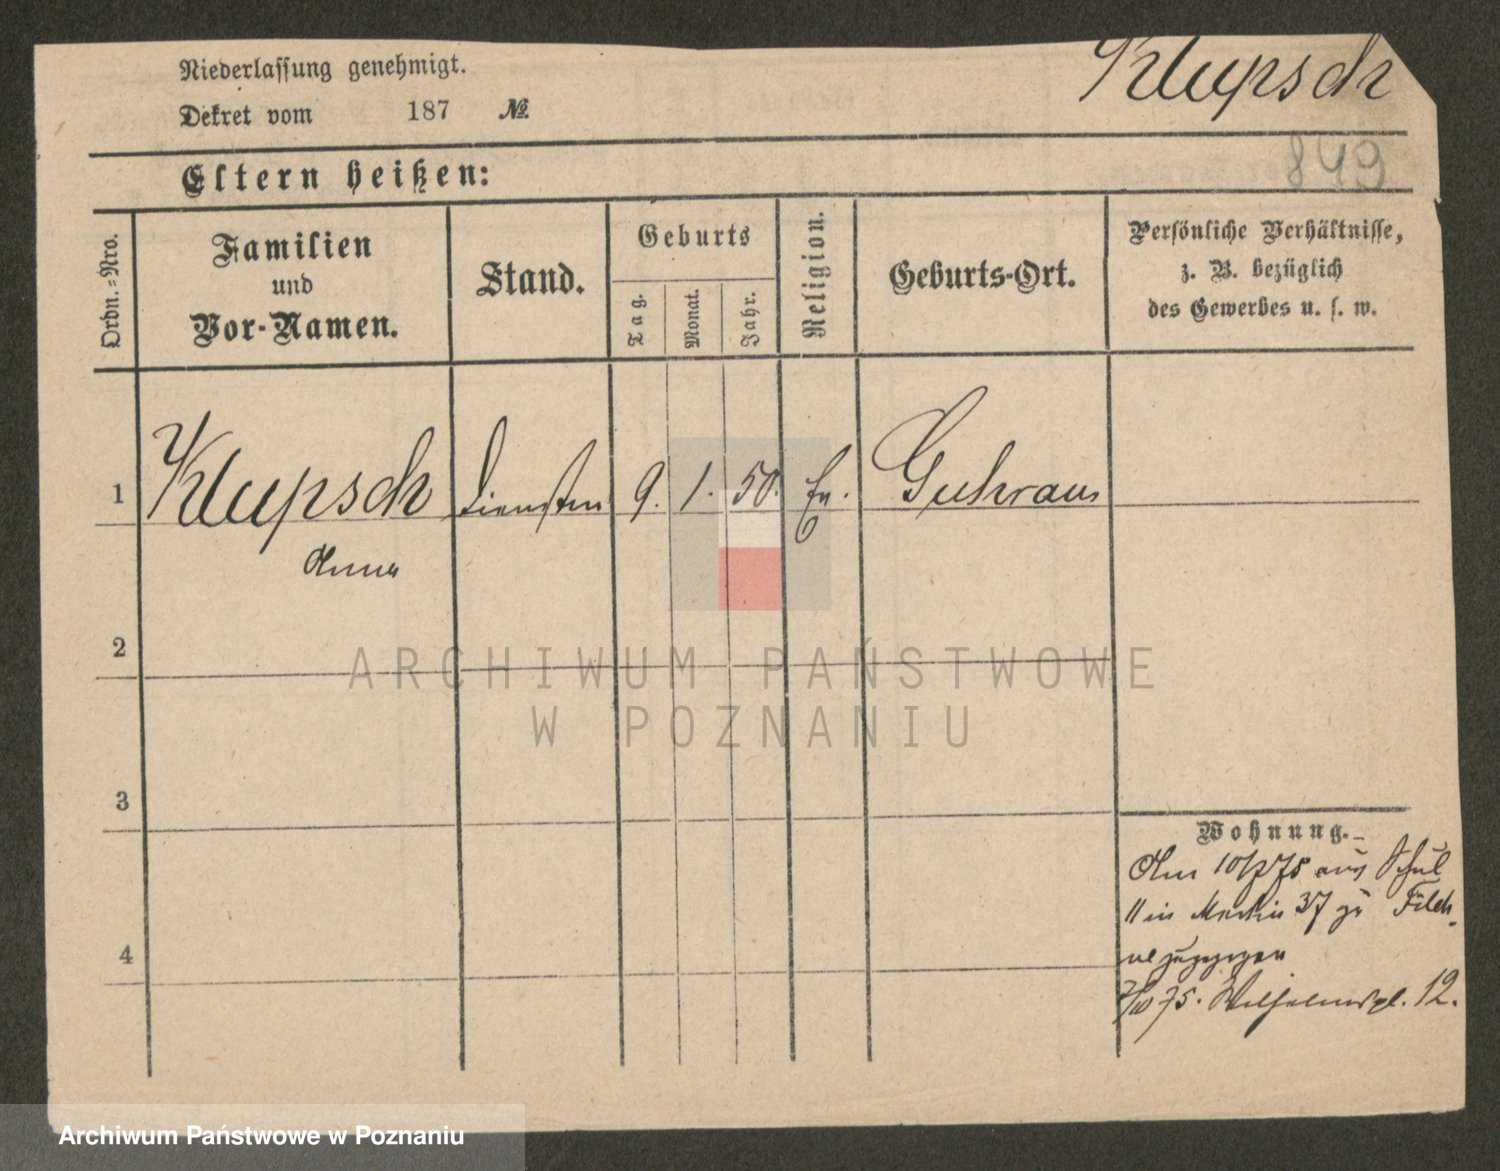 Niederlassung genehmigt.
Klupsch
Dekret vom 187 №
849
Eltern heißen:
Ordn.-Nro.
Familien
und
Vor-Namen.
Stand.
Geburts
Tag.
Monat.
Jahr.
Religion.
Geburts-Ort.
Persönliche Verhältnisse,
z. B. bezüglich
des Gewerbes u. s. w.
1 Klupsch 9. 1. 50. Ev. Guhrau
Anna
2
ARCHIWUM PAŃSTWOWE
W POZNANIU
3
Wohnung.
Am 10/7 75 aus Schul
11 in Martin 37 zu
zugezogen
4
75. Wilhelmspl. 12.
Archiwum Państwowe w Poznaniu